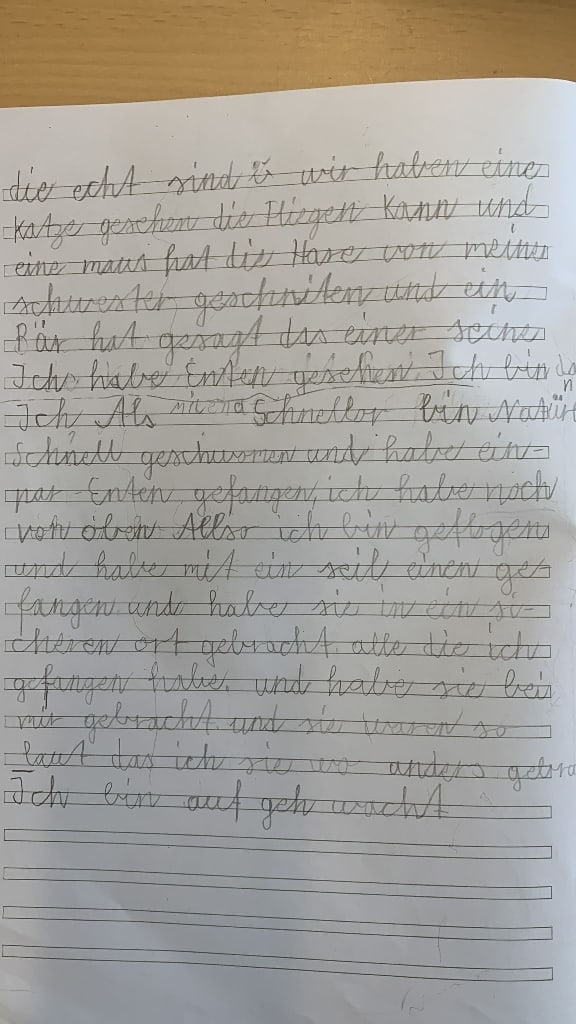 die echt sind wir haben eine
Katze gesehen die Fliegen Kann und
eine maus hat die Hare von meiner
schwester geschniten und ein
Bär hat gesagt das einer seine
Ich habe Enten gesehen. Ich bin da
Ich Als Schneller bin Natür
Schnell geschwomen und habe ein-
par Enten gefangen, ich habe noch
von oben Allso ich bin geflogen
und habe mit ein seil einen ge-
fangen und habe sie in ein si-
cheren ort gebracht alle die ich
gefangen habe. und habe sie bei
mir gebracht und sie waren so
laut das ich sie wo anders gebra
Ich bin auf geh wacht